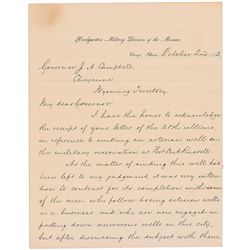 Headquarters Military Division of the Missouri,
Chicago, Illinois, October 2nd 1872
Governor J. A. Campbell,
Cheyenne,
Wyoming Territory.
My dear Governor:
I have the honor to acknowledge
the receipt of your letter of the 27th ultimo,
in reference to sinking an artesian well on
the military reservation at Fort D. A. Russell.
As the matter of sinking this well had
been left to my judgment, it was my inten-
tion to contract for its completion with some
of the men who follow boring artesian wells
as a business and who are now engaged in
putting down numerous wells in this city,
but after discussing the subject with them,